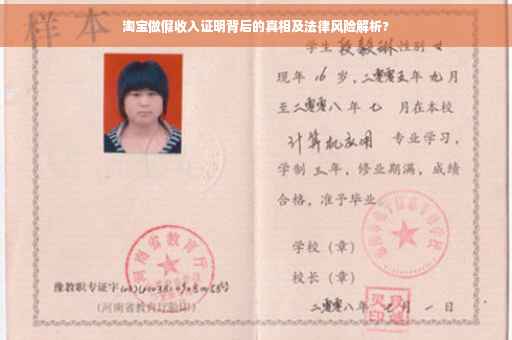 淘宝做假收入证明背后的真相及法律风险解析?
样本
学生 段毅琳 性别 女
现年 16 岁,二零零五年 九 月
至二零零八 年 七 月在本校
计算机应用 专业学习,
学制 三 年,修业期满,成绩
合格,准予毕业
学校(章)
校长(章)
二零零八年 七 月 一 日
河南省教育厅
豫教职专证字
(河南省教育厅验印)